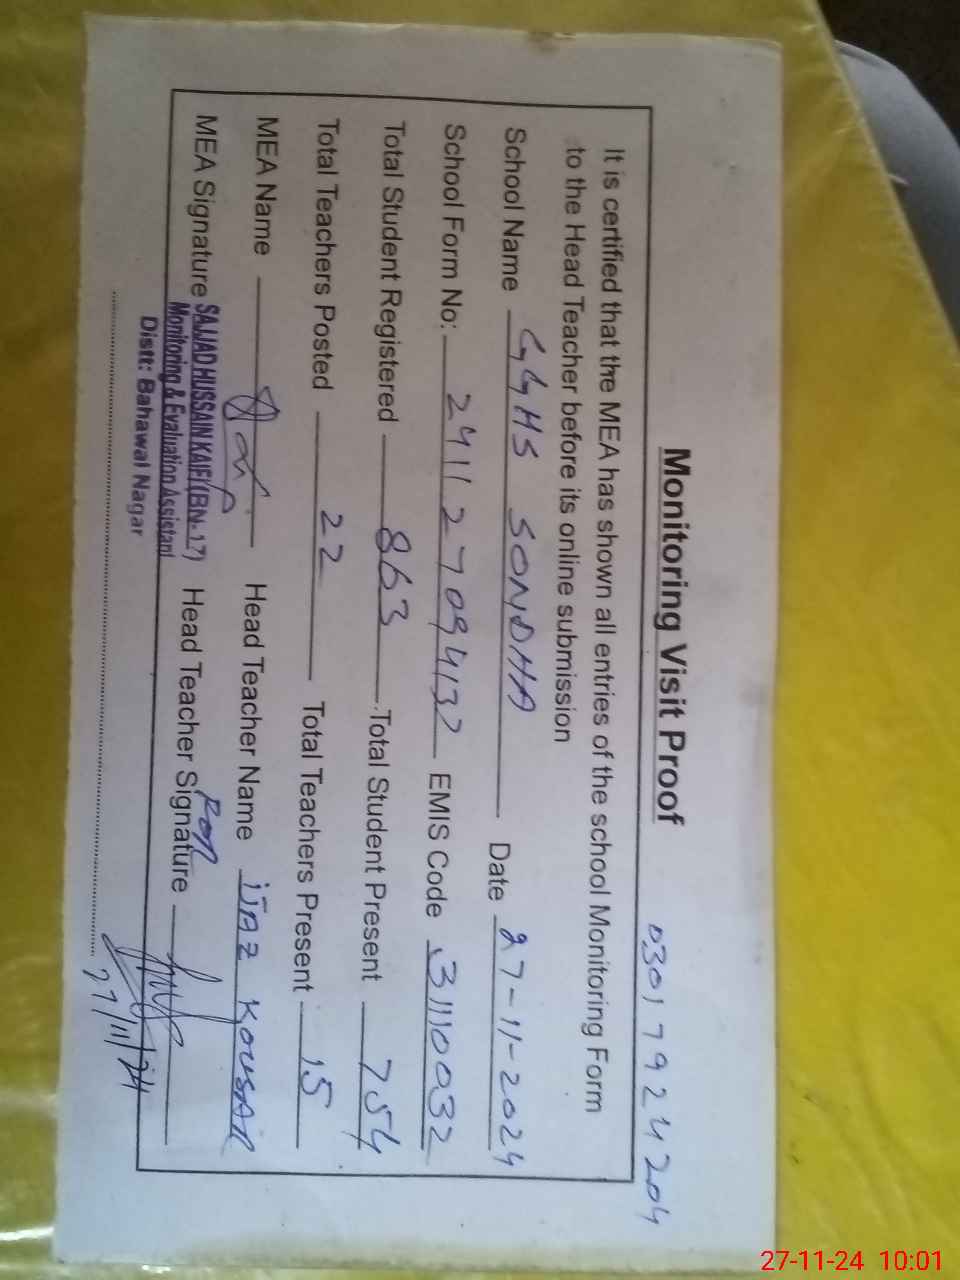 03017924204
Monitoring Visit Proof
It is certified that the MEA has shown all entries of the school Monitoring Form
to the Head Teacher before its online submission
School Name GGHS SONDHA Date 27-11-2024
School Form No: 2411 2709432 EMIS Code 31110032
Total Student Registered 863 Total Student Present 754
Total Teachers Posted 22 Total Teachers Present 15
MEA Name Head Teacher Name IJAZ KOUSAR
MEA Signature Head Teacher Signature
SAJJAD HUSSAIN KAIFI (BN-17)
Monitoring & Evaluation Assistant
Distt: Bahawal Nagar
27/11/24
27-11-24 10:01